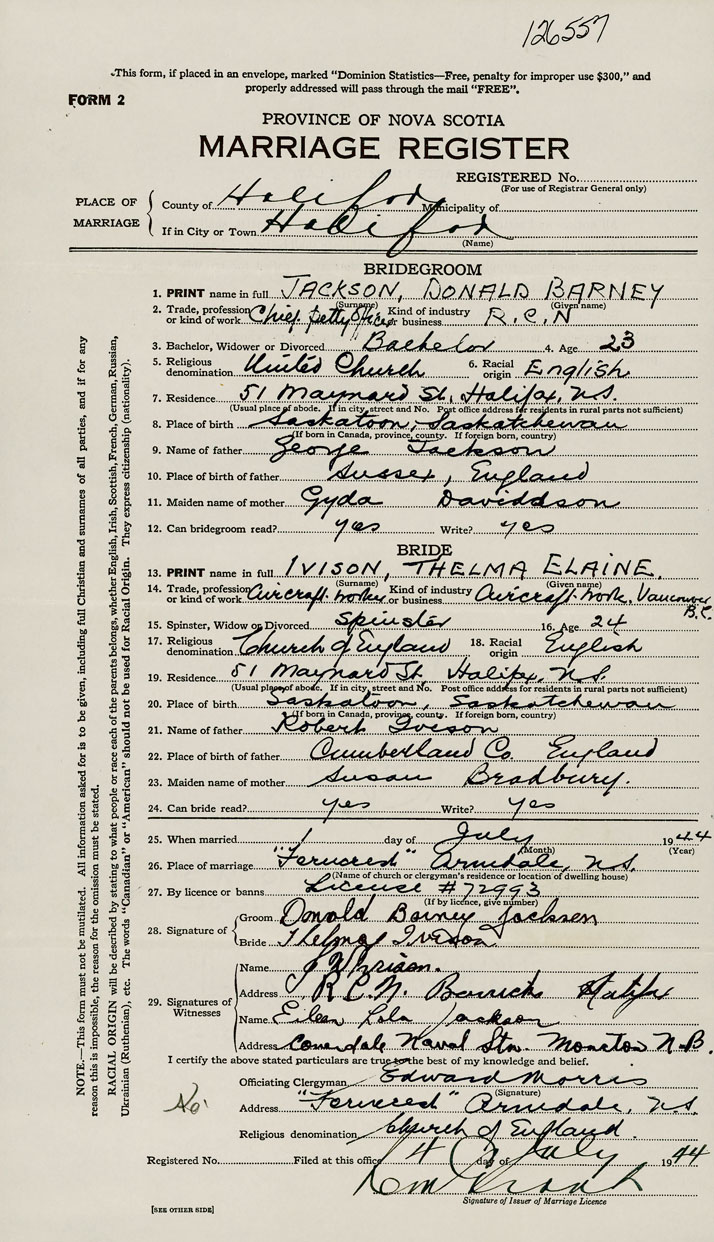 126557
This form, if placed in an envelope, marked "Dominion Statistics—Free, penalty for improper use $300," and
properly addressed will pass through the mail "FREE".
FORM 2
PROVINCE OF NOVA SCOTIA
MARRIAGE REGISTER
REGISTERED No.
(For use of Registrar General only)
PLACE OF MARRIAGE
County of Halifax Municipality of
If in City or Town Halifax
(Name)
BRIDEGROOM
1. PRINT name in full JACKSON, DONALD BARNEY
(Surname) (Given name)
2. Trade, profession or kind of work Chief Petty Officer Kind of industry or business R.C.N
3. Bachelor, Widower or Divorced Bachelor 4. Age 23
5. Religious denomination United Church 6. Racial origin English
7. Residence 51 Maynard St, Halifax, N.S.
(Usual place of abode. If in city, street and No. Post office address for residents in rural parts not sufficient)
8. Place of birth Saskatoon, Saskatchewan
(If born in Canada, province, county. If foreign born, country)
9. Name of father George Jackson
10. Place of birth of father Sussex, England
11. Maiden name of mother Gyda Davidson
12. Can bridegroom read? yes Write? yes
BRIDE
13. PRINT name in full IVISON, THELMA ELAINE.
(Surname) (Given name)
14. Trade, profession or kind of work Aircraft. worker Kind of industry or business Aircraft. work, Vancouver B.C.
15. Spinster, Widow or Divorced Spinster 16. Age 24
17. Religious denomination Church of England 18. Racial origin English
19. Residence 51 Maynard St Halifax, N.S.
(Usual place of abode. If in city, street and No. Post office address for residents in rural parts not sufficient)
20. Place of birth Saskatoon, Saskatchewan
(If born in Canada, province, county. If foreign born, country)
21. Name of father Robert Iveson
22. Place of birth of father Cumberland Co. England
23. Maiden name of mother Susan Bradbury.
24. Can bride read? yes Write? yes
25. When married 1 day of July 1944
(Month) (Year)
26. Place of marriage "Ferncrest" Armdale, N.S.
(Name of church or clergyman's residence or location of dwelling house)
27. By licence or banns License #72993
(If by licence, give number)
28. Signature of
Groom Donald Barney Jackson
Bride Thelma Iveson
29. Signatures of Witnesses
Name
Address R.C.N. Barracks Halifax
Name Eileen Lola Jackson
Address Coverdale Naval Stn. Moncton N.B.
I certify the above stated particulars are true to the best of my knowledge and belief.
Officiating Clergyman Edward Morris
(Signature)
Address "Ferncrest" Armdale, N.S.
Religious denomination Church of England.
Registered No. Filed at this office 4 day of July 1944
Signature of Issuer of Marriage Licence
[SEE OTHER SIDE]
NOTE.—This form must not be mutilated. All information asked for is to be given, including full Christian and surnames of all parties, and if for any
reason this is impossible, the reason for the omission must be stated.
RACIAL ORIGIN will be described by stating to what people or race each of the parents belongs, whether English, Irish, Scottish, French, German, Russian,
Ukrainian (Ruthenian), etc. The words "Canadian" or "American" should not be used for Racial Origin. They express citizenship (nationality).